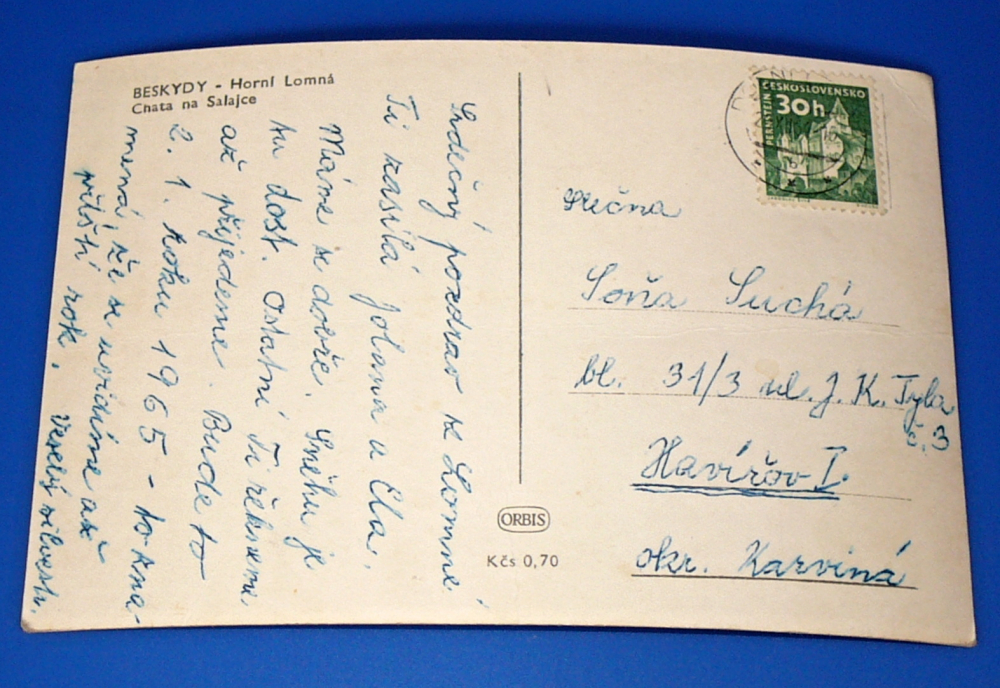 BESKYDY - Horní Lomná
Chata na Salajce
Srdečný pozdrav z Lomné
Ti zasílá Jolana u Ela.
Máme se dobře. Sněhu je
tu dost. Ostatní Ti řekneme
až přijedeme. Bude to
2. 1. roku 1965 - to zna-
mená, že se uvidíme až
příští rok. Veselý silvestr.
ČESKOSLOVENSKO
30h
PERNŠTEJN
Slečna
Soňa Suchá
bl. 31/3 ul. J. K. Tyla
č. 3
Havířov I.
okr. Karviná
ORBIS
Kčs 0,70